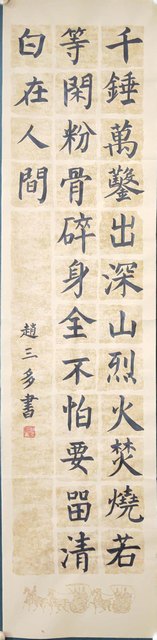 千錘萬鑿出深山烈火焚燒若
等閑粉骨碎身全不怕要留清
白在人間
趙三多書